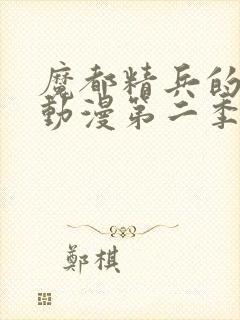 魔都精兵的
動漫第二季
鄭棋